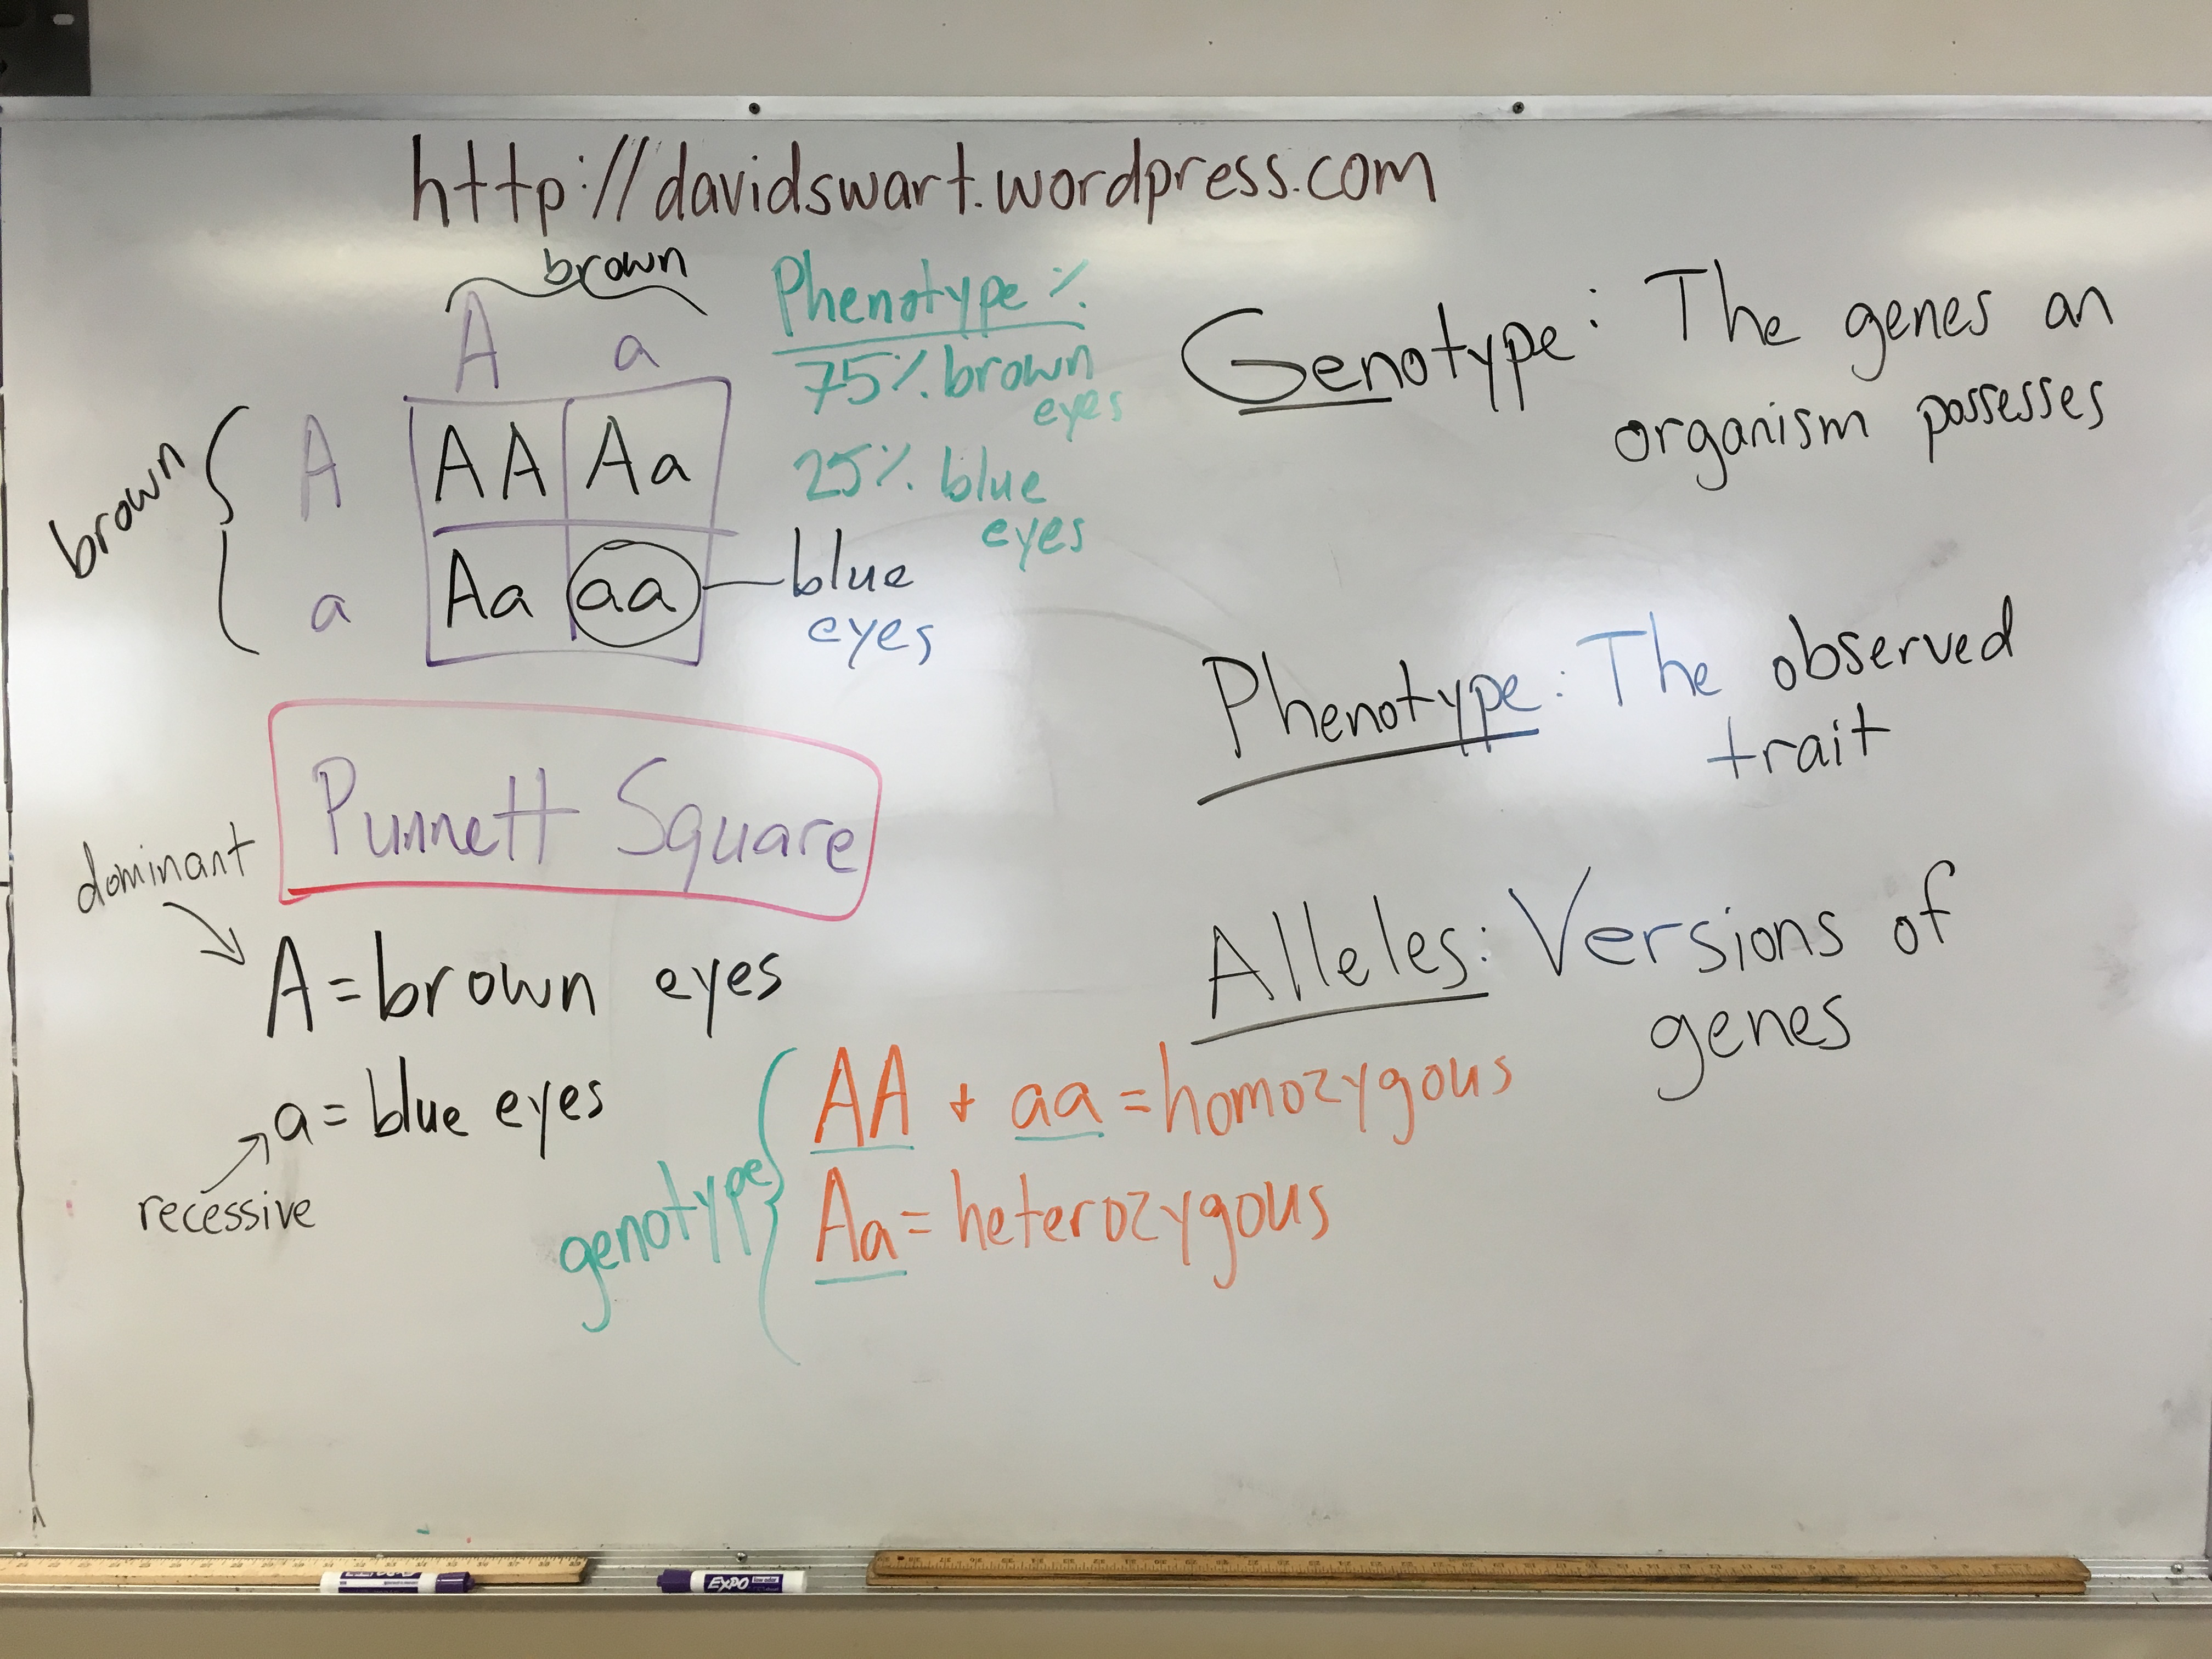 http://davidswart.wordpress.com
brown
A a
brown
A
AA Aa
a
Aa aa
Phenotype %
75% brown
eyes
25% blue
eyes
blue
eyes
Punnett Square
dominant
A = brown eyes
a = blue eyes
recessive
genotype
AA + aa = homozygous
Aa = heterozygous
Genotype: The genes an
organism possesses
Phenotype: The observed
trait
Alleles: Versions of
genes
EXPO